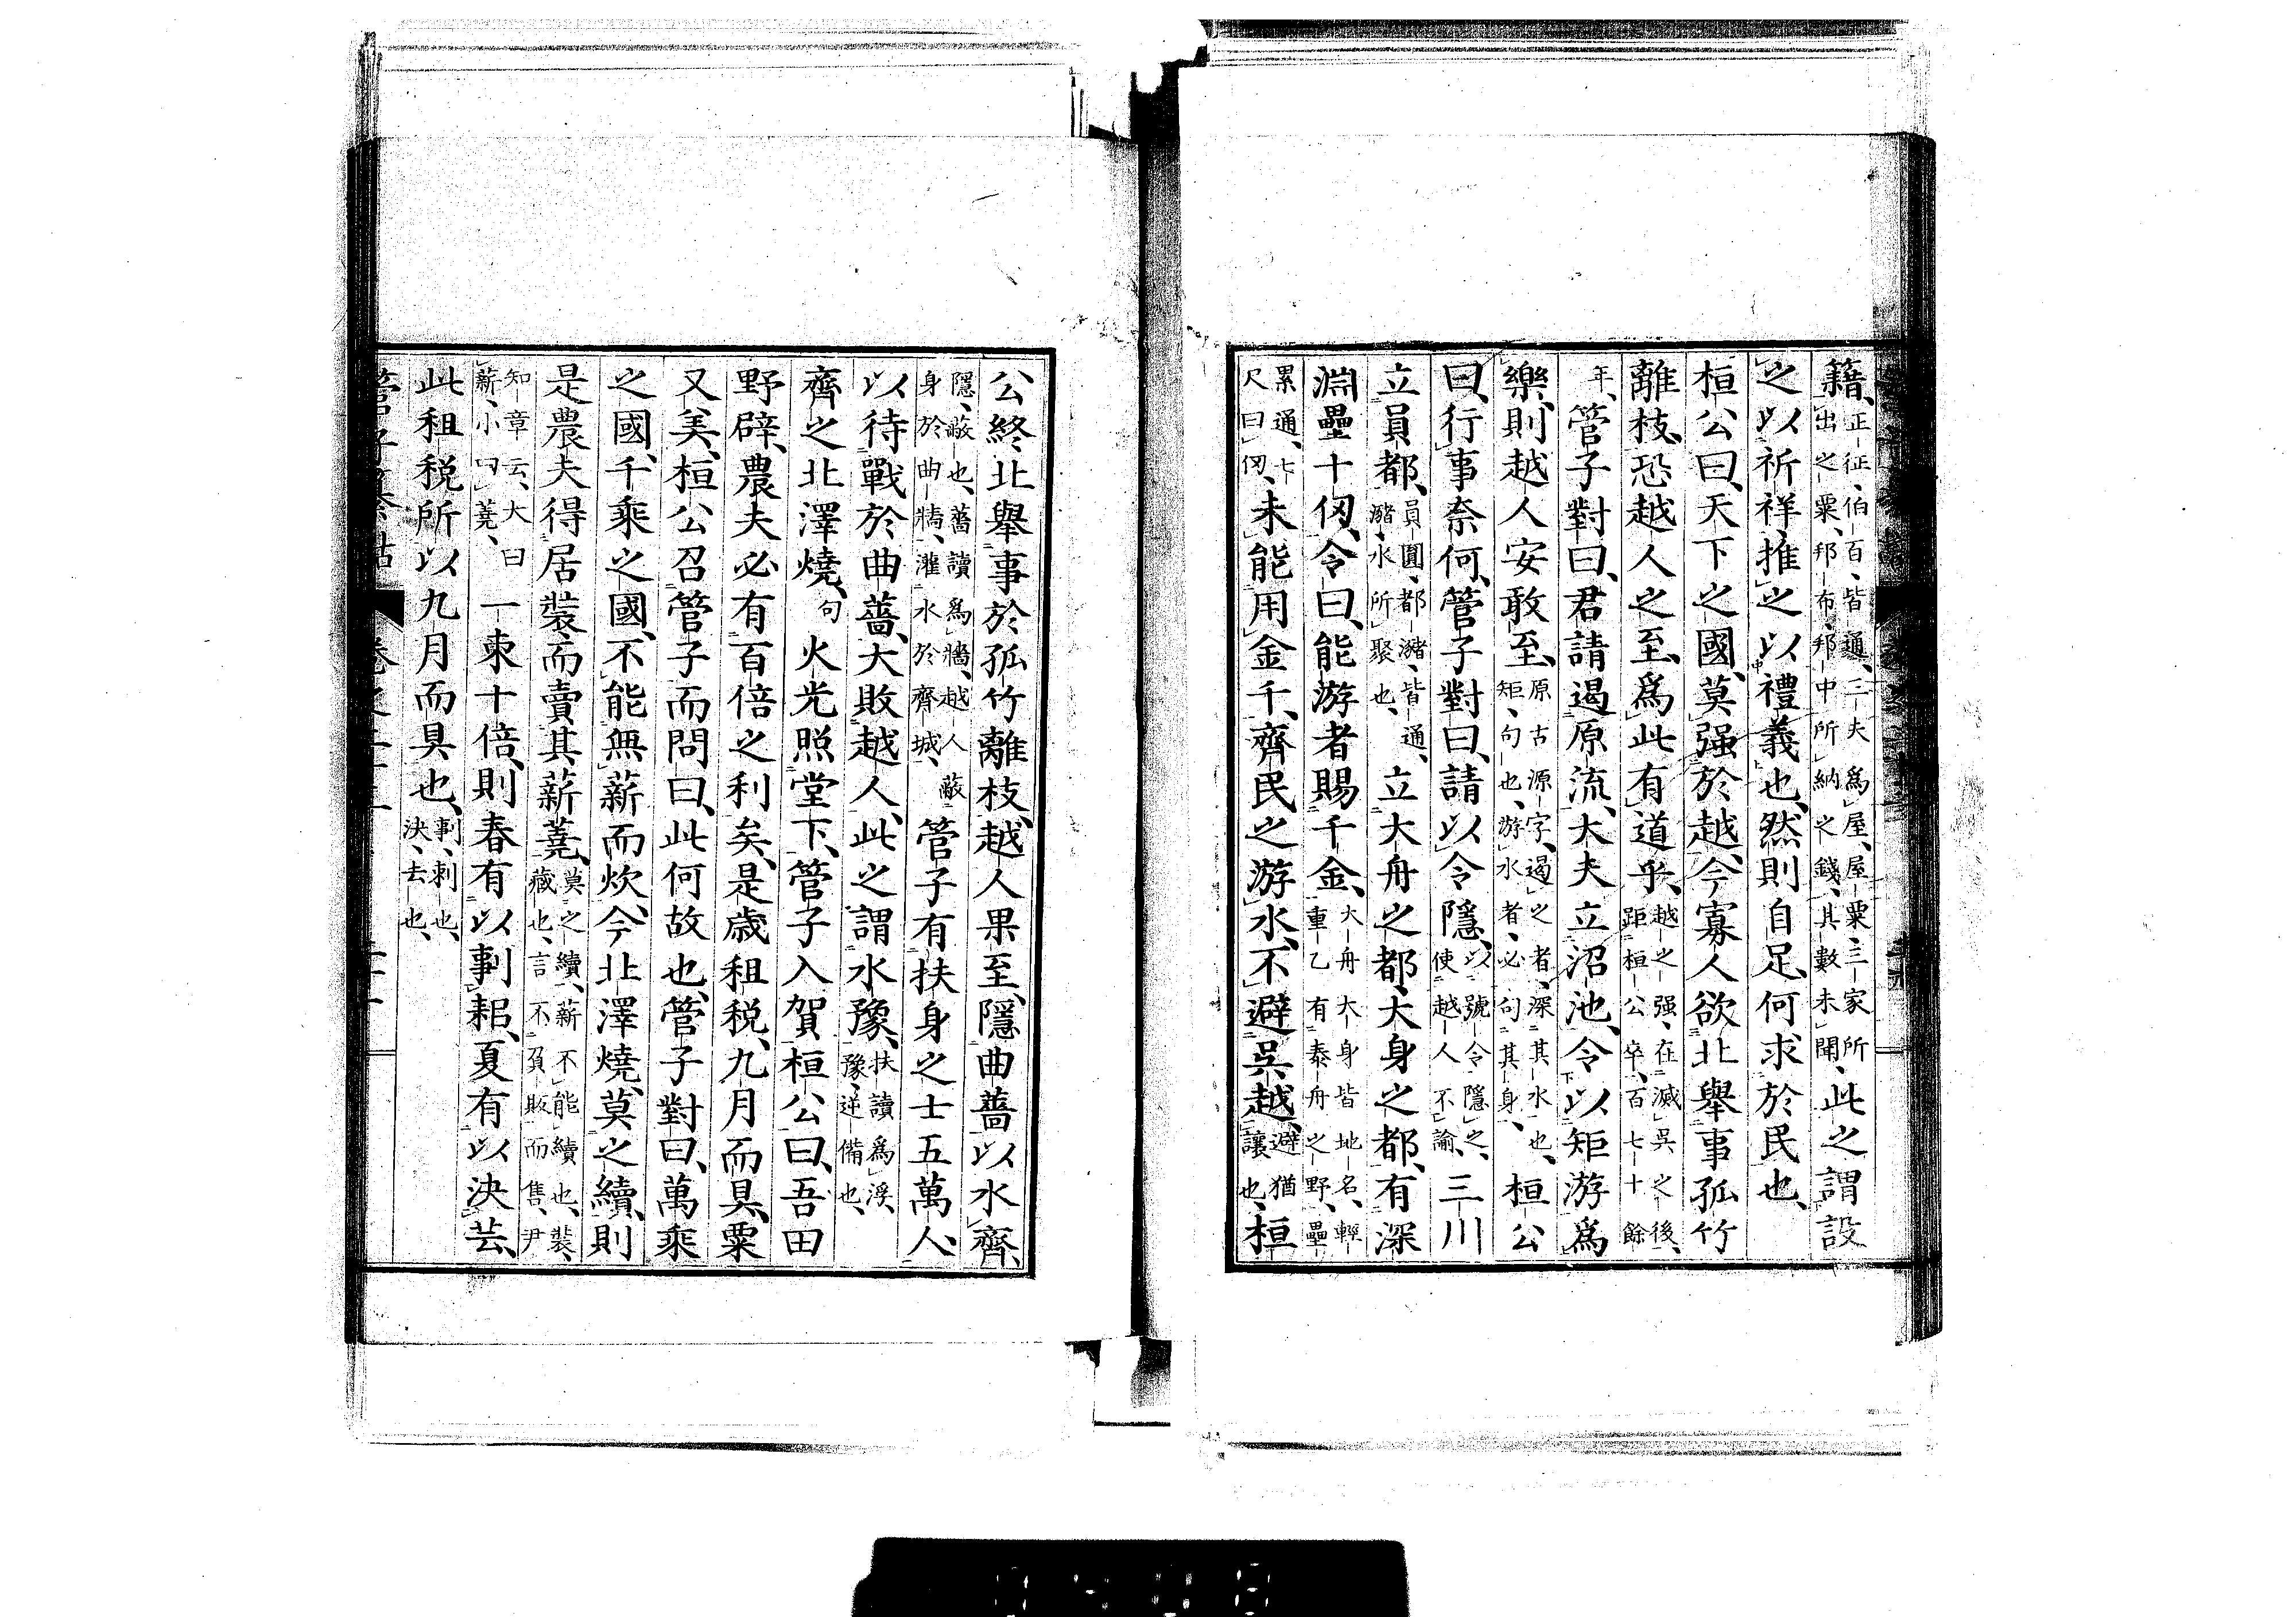 籍、正―征、伯―百、皆通、三―夫爲屋、屋―粟、三―家所出之粟、邦―布、邦―中所納之錢、其數未聞、此之謂設
之以祈祥、推之以禮義也、然則自足、何求於民也、
桓公曰、天下之國、莫强於越、今寡人欲北舉事孤竹
離枝、恐越人之至、爲此有道乎、越之强、在滅吳之後、距桓公卒、百七十餘
年、管子對曰、君請遏原流、大夫立沼池、令以矩游爲
樂、則越人安敢至、原古源字、遏之者、深其水也、矩、句也、游水者、必句其身、桓公
曰、行事奈何、管子對曰、請以令隱、以號令隱之、使越人不諭、三川
立員都、員圓、都瀦、皆通、瀦水所聚也、立大舟之都、大身之都、有深
淵壘十仭、令曰、能游者賜千金、大舟大身皆地名、輕重乙有泰舟之野、壘
累通、七尺曰仭、未能用金千、齊民之游水、不避吳越、避猶讓也、桓
公終北舉事於孤竹離枝、越人果至、隱曲薔以水齊、
隱、蔽也、薔讀爲牆、越人蔽身於曲牆、灌水於齊城、管子有扶身之士五萬人、
以待戰於曲薔、大敗越人、此之謂水豫、扶讀爲浮、豫、逆備也、
齊之北澤燒、句火光照堂下、管子入賀桓公曰、吾田
野辟、農夫必有百倍之利矣、是歲租税、九月而具、粟
又美、桓公召管子而問曰、此何故也、管子對曰、萬乘
之國、千乘之國、不能無薪而炊、今北澤燒、莫之續、則
是農夫得居裝而賣其薪蕘、莫之續、薪不能續也、裝、藏也、言不負販而售、尹
知章云、大曰薪、小曰蕘、一束十倍、則春有以剚耜、夏有以決芸、
此租税所以九月而具也、剚、刺也、決、去也、